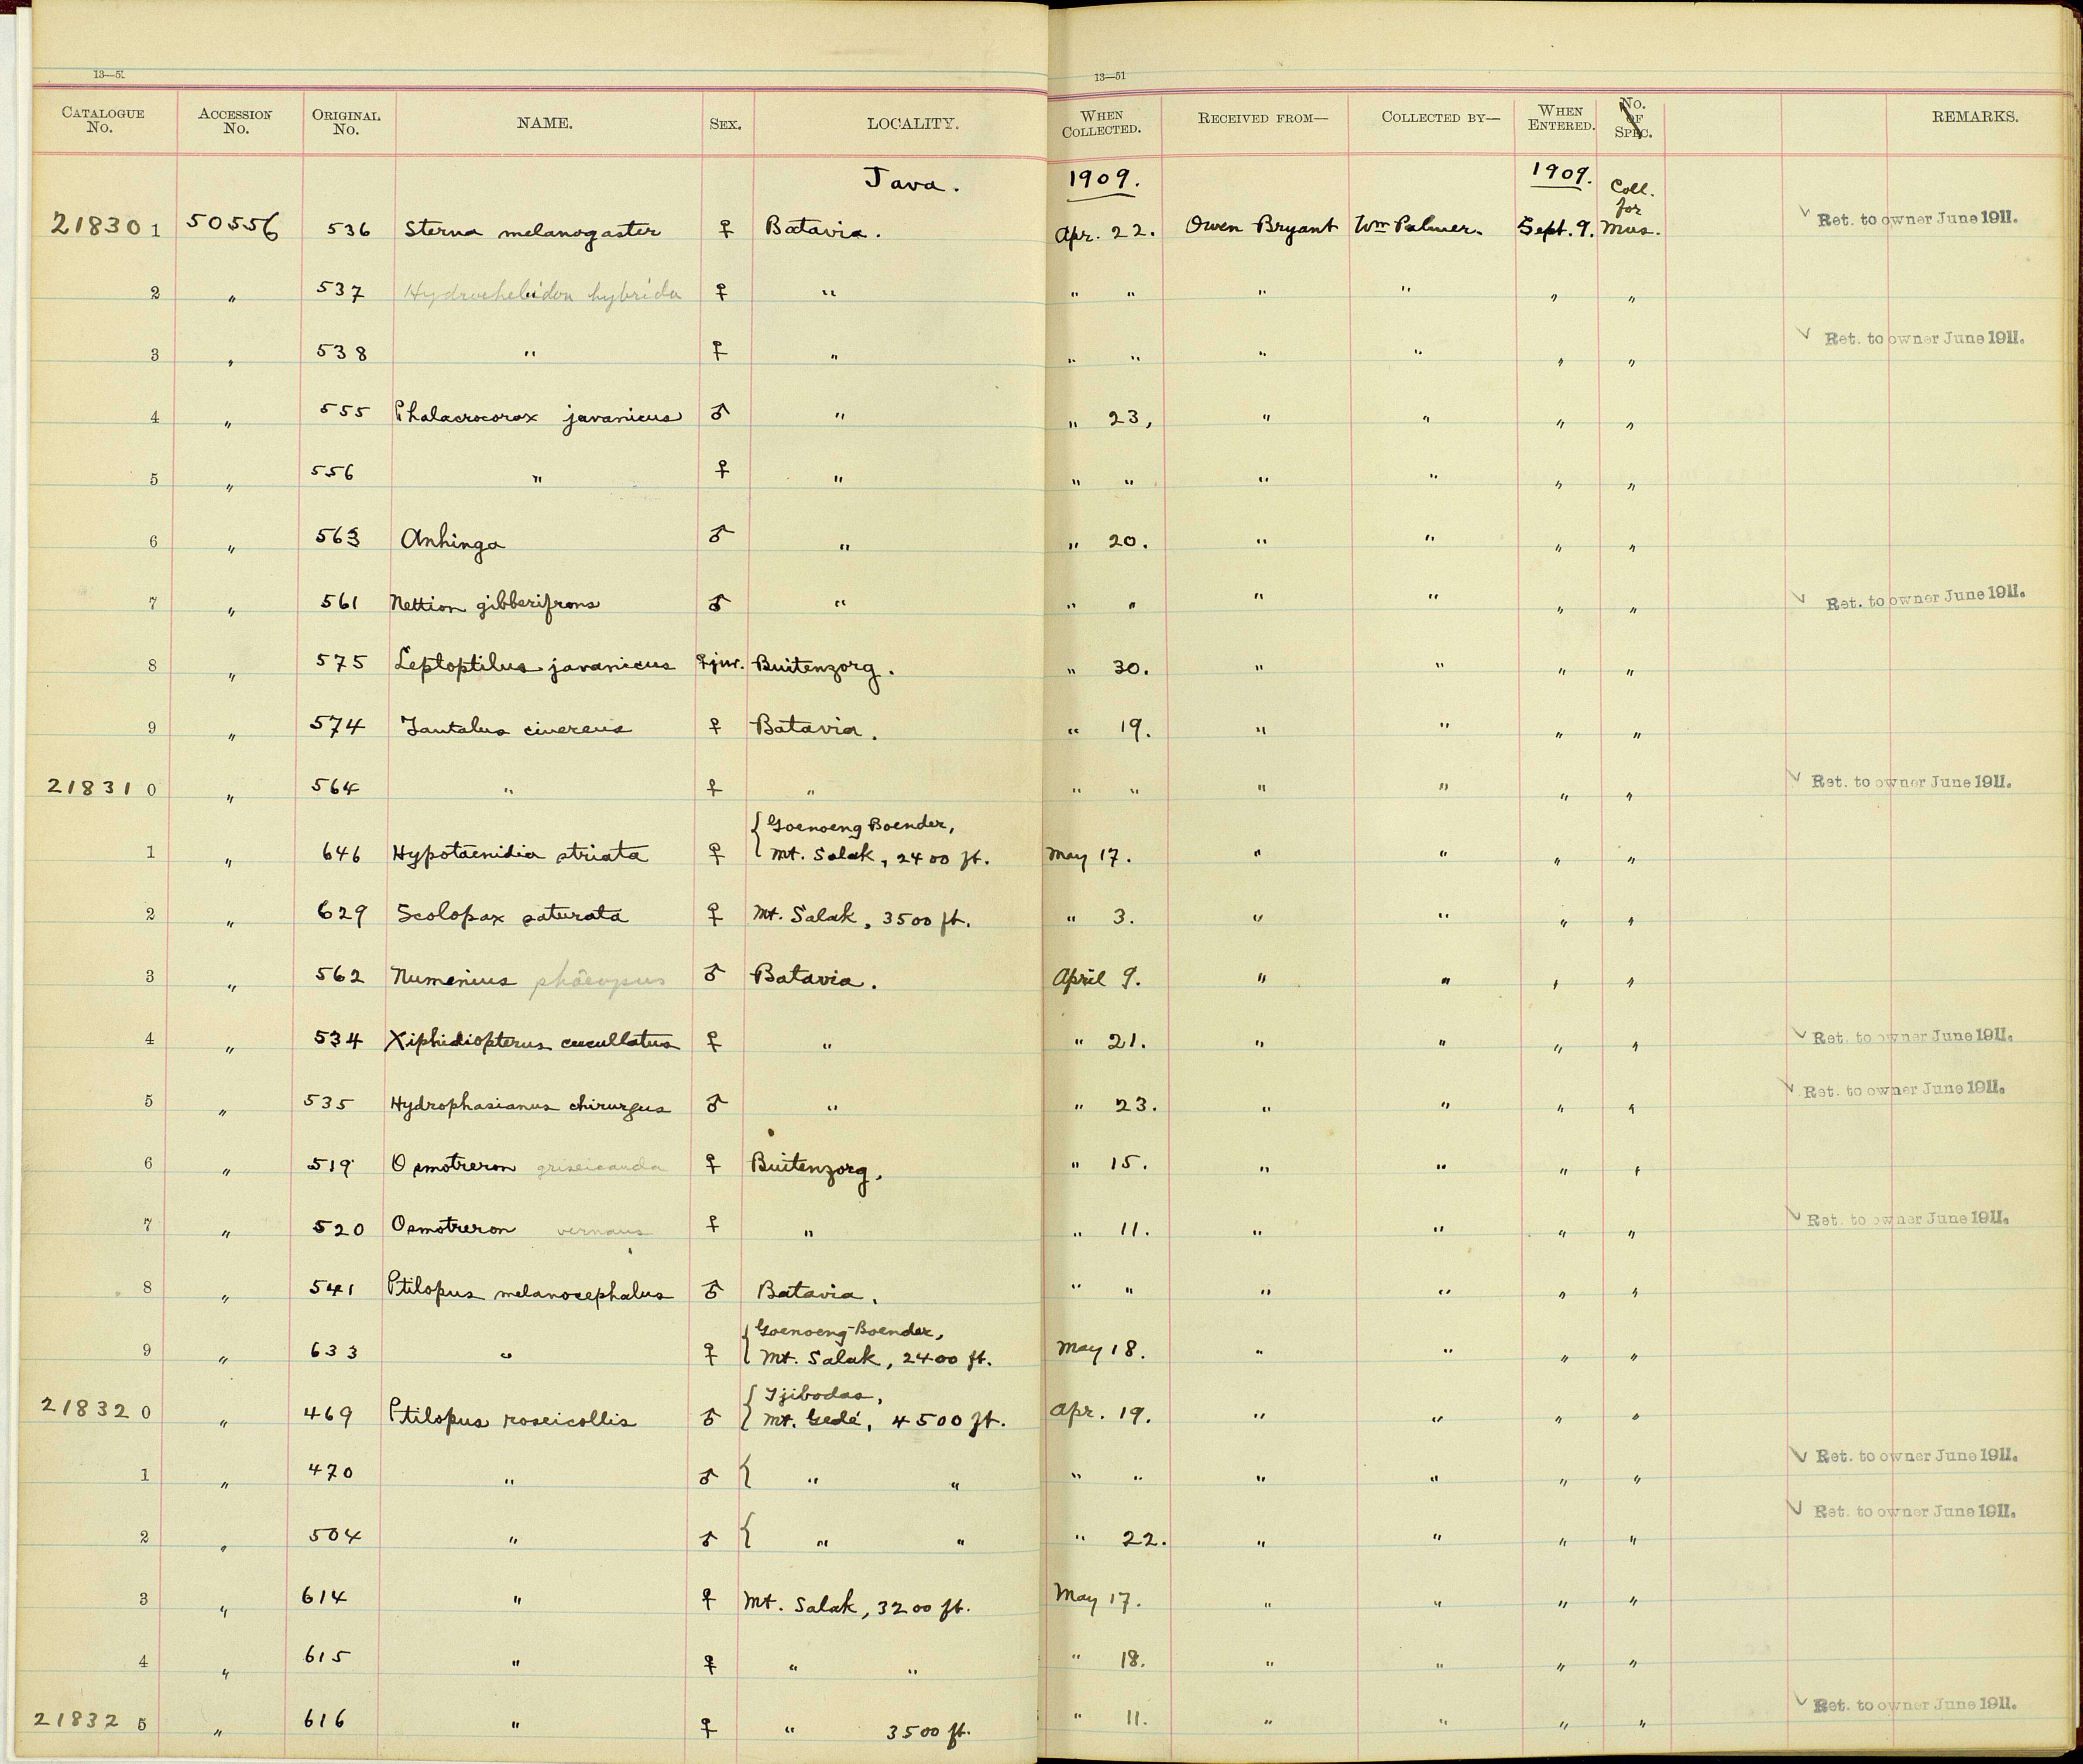 13—51 13—51
CATALOGUE No. ACCESSION No. ORIGINAL No. NAME. SEX. LOCALITY. WHEN COLLECTED. RECEIVED FROM— COLLECTED BY— WHEN ENTERED. No. OF SPEC. REMARKS.
Java. 1909. 1909. Coll. for
218301 50556 536 Sterna melanogaster ♀ Batavia. Apr. 22. Owen Bryant Wm Palmer. Sept. 9. Mus. √ Ret. to owner June 1911.
2 " 537 Hydrochelidon hybrida ♀ " " " " " " "
3 " 538 " ♀ " " " " " " " √ Ret. to owner June 1911.
4 " 555 Phalacrocorax javanicus ♂ " " 23, " " " "
5 " 556 " ♀ " " " " " " "
6 " 563 Anhinga ♂ " " 20. " " " "
7 " 561 Nettion gibberifrons ♂ " " " " " " " √ Ret. to owner June 1911.
8 " 575 Leptoptilus javanicus ♀juv. Buitenzorg. " 30. " " " "
9 " 574 Tantalus cinereus ♀ Batavia. " 19. " " " "
218310 " 564 " ♀ " " " " " " " √ Ret. to owner June 1911.
1 " 646 Hypotaenidia striata ♀ { Goenoeng Boender, Mt. Salak, 2400 ft. May 17. " " " "
2 " 629 Scolopax saturata ♀ Mt. Salak, 3500 ft. " 3. " " " "
3 " 562 Numenius phaeopus ♂ Batavia. April 9. " " " "
4 " 534 Xiphidiopterus cucullatus ♀ " " 21. " " " " √ Ret. to owner June 1911.
5 " 535 Hydrophasianus chirurgus ♂ " " 23. " " " " √ Ret. to owner June 1911.
6 " 519 Osmotreron griseicauda ♀ Buitenzorg. " 15. " " " "
7 " 520 Osmotreron vernans ♀ " " 11. " " " " √ Ret. to owner June 1911.
8 " 541 Ptilopus melanocephalus ♂ Batavia. " " " " " "
9 " 633 " ♀ { Goenoeng-Boender, Mt. Salak, 2400 ft. May 18. " " " "
218320 " 469 Ptilopus roseicollis ♂ { Tjibodas, Mt. Gedé, 4500 ft. Apr. 19. " " " "
1 " 470 " ♂ { " " " " " " " " √ Ret. to owner June 1911.
2 " 504 " ♂ { " " " 22. " " " " √ Ret. to owner June 1911.
3 " 614 " ♀ Mt. Salak, 3200 ft. May 17. " " " "
4 " 615 " ♀ " " " 18. " " " "
218325 " 616 " ♀ " 3500 ft. " 11. " " " " √ Ret. to owner June 1911.